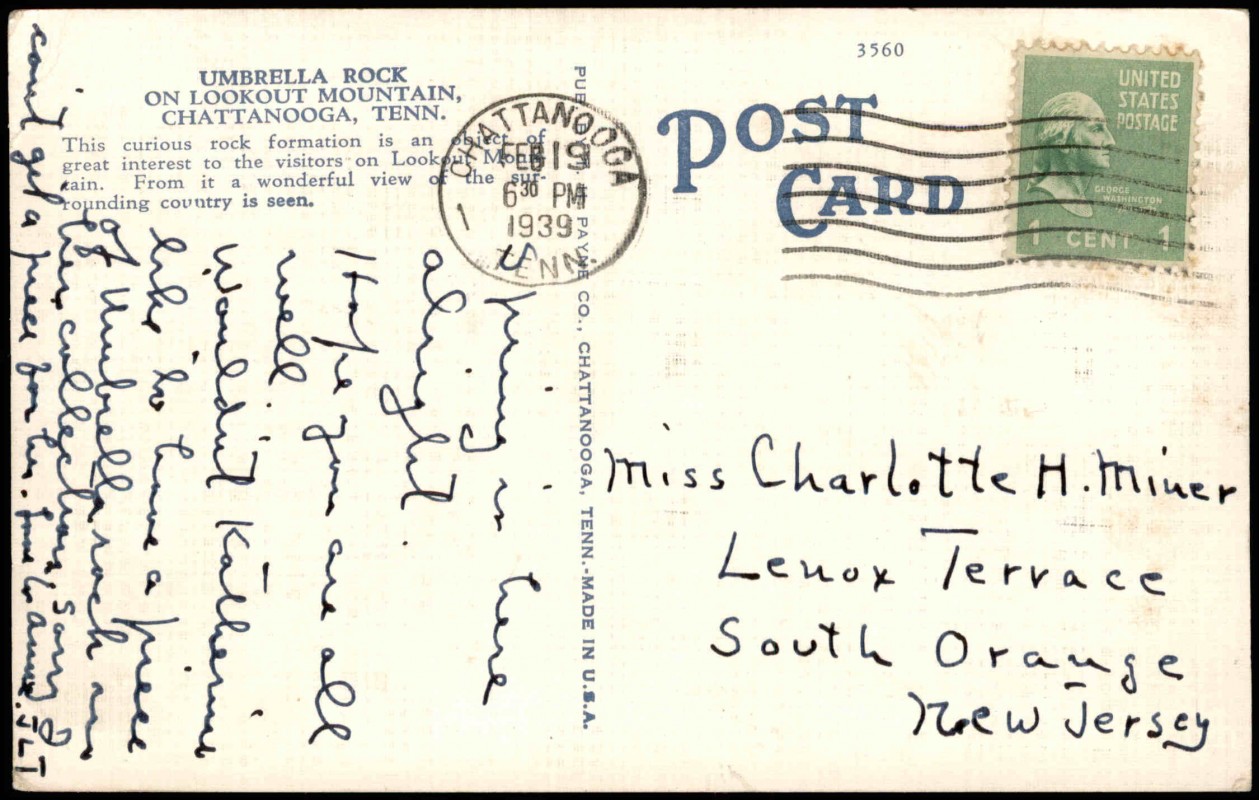 3560
UMBRELLA ROCK
ON LOOKOUT MOUNTAIN,
CHATTANOOGA, TENN.
This curious rock formation is an object of
great interest to the visitors on Lookout Moun-
tain. From it a wonderful view of the sur-
rounding country is seen.
CHATTANOOGA
FEB 19
6 30 PM
1939
TENN.
1
POST
CARD
UNITED
STATES
POSTAGE
GEORGE
WASHINGTON
1 CENT 1
PAYNE CO., CHATTANOOGA, TENN.-MADE IN U.S.A.
Miss Charlotte H. Miner
Lenox Terrace
South Orange
New Jersey
here
alright.
Hope you are all
well.
Wouldn't Katherine
like to have a piece
of Umbrella rock in
her collection, sorry I
can't get a piece for her. JLT